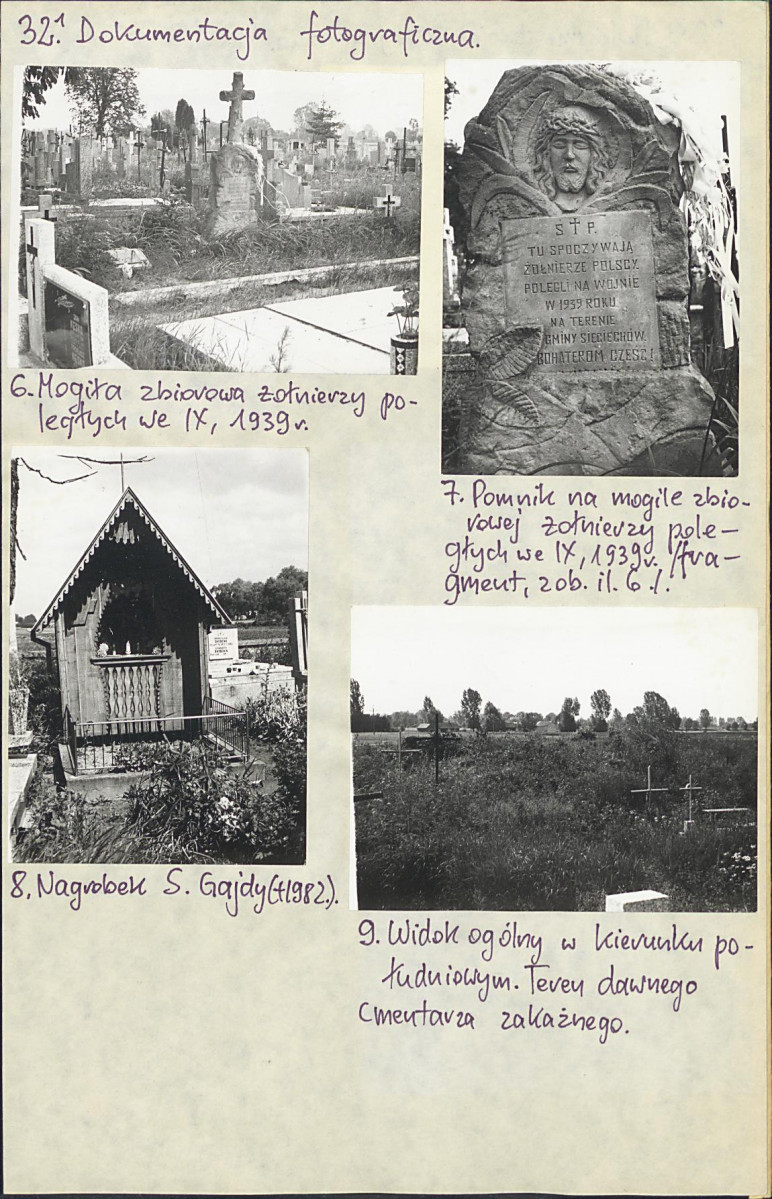 32.1 Dokumentacja fotograficzna.
6. Mogiła zbiorowa żołnierzy po-
ległych we IX, 1939 r.
S † P.
TU SPOCZYWAJĄ
ŻOŁNIERZE POLSCY.
POLEGLI NA WOJNIE
W 1939 ROKU
NA TERENIE
GMINY SIECIECHÓW.
BOHATEROM CZEŚĆ!
7. Pomnik na mogile zbio-
rowej żołnierzy pole-
głych we IX, 1939 r. /fra-
gment, zob. il. 6./.
8. Nagrobek S. Gajdy (†1982.).
9. Widok ogólny w kierunku po-
łudniowym. Teren dawnego
cmentarza zakaźnego.